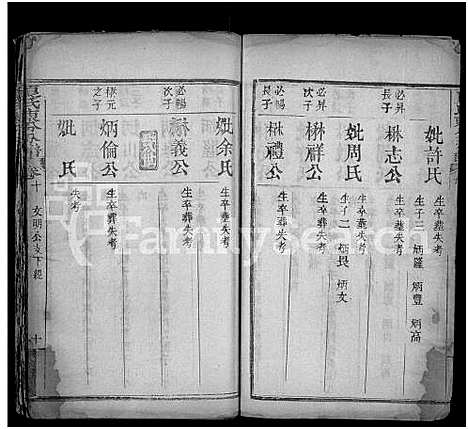 必昇
長子
妣許氏
生卒葬失考
生子三 炳隆 炳豐 炳高
楙志公
生卒葬失考
妣周氏
生卒葬失考
生子二 炳艮 炳文
楙祥公
生卒葬失考
必暢
長子
楙禮公
生卒葬失考
妣余氏
生卒葬失考
必暢
次子
楙義公
生卒葬失考
楙元
之子
炳倫公
生卒葬失考
妣 氏
失考
卷十
文明公支下
十
FamilySearch